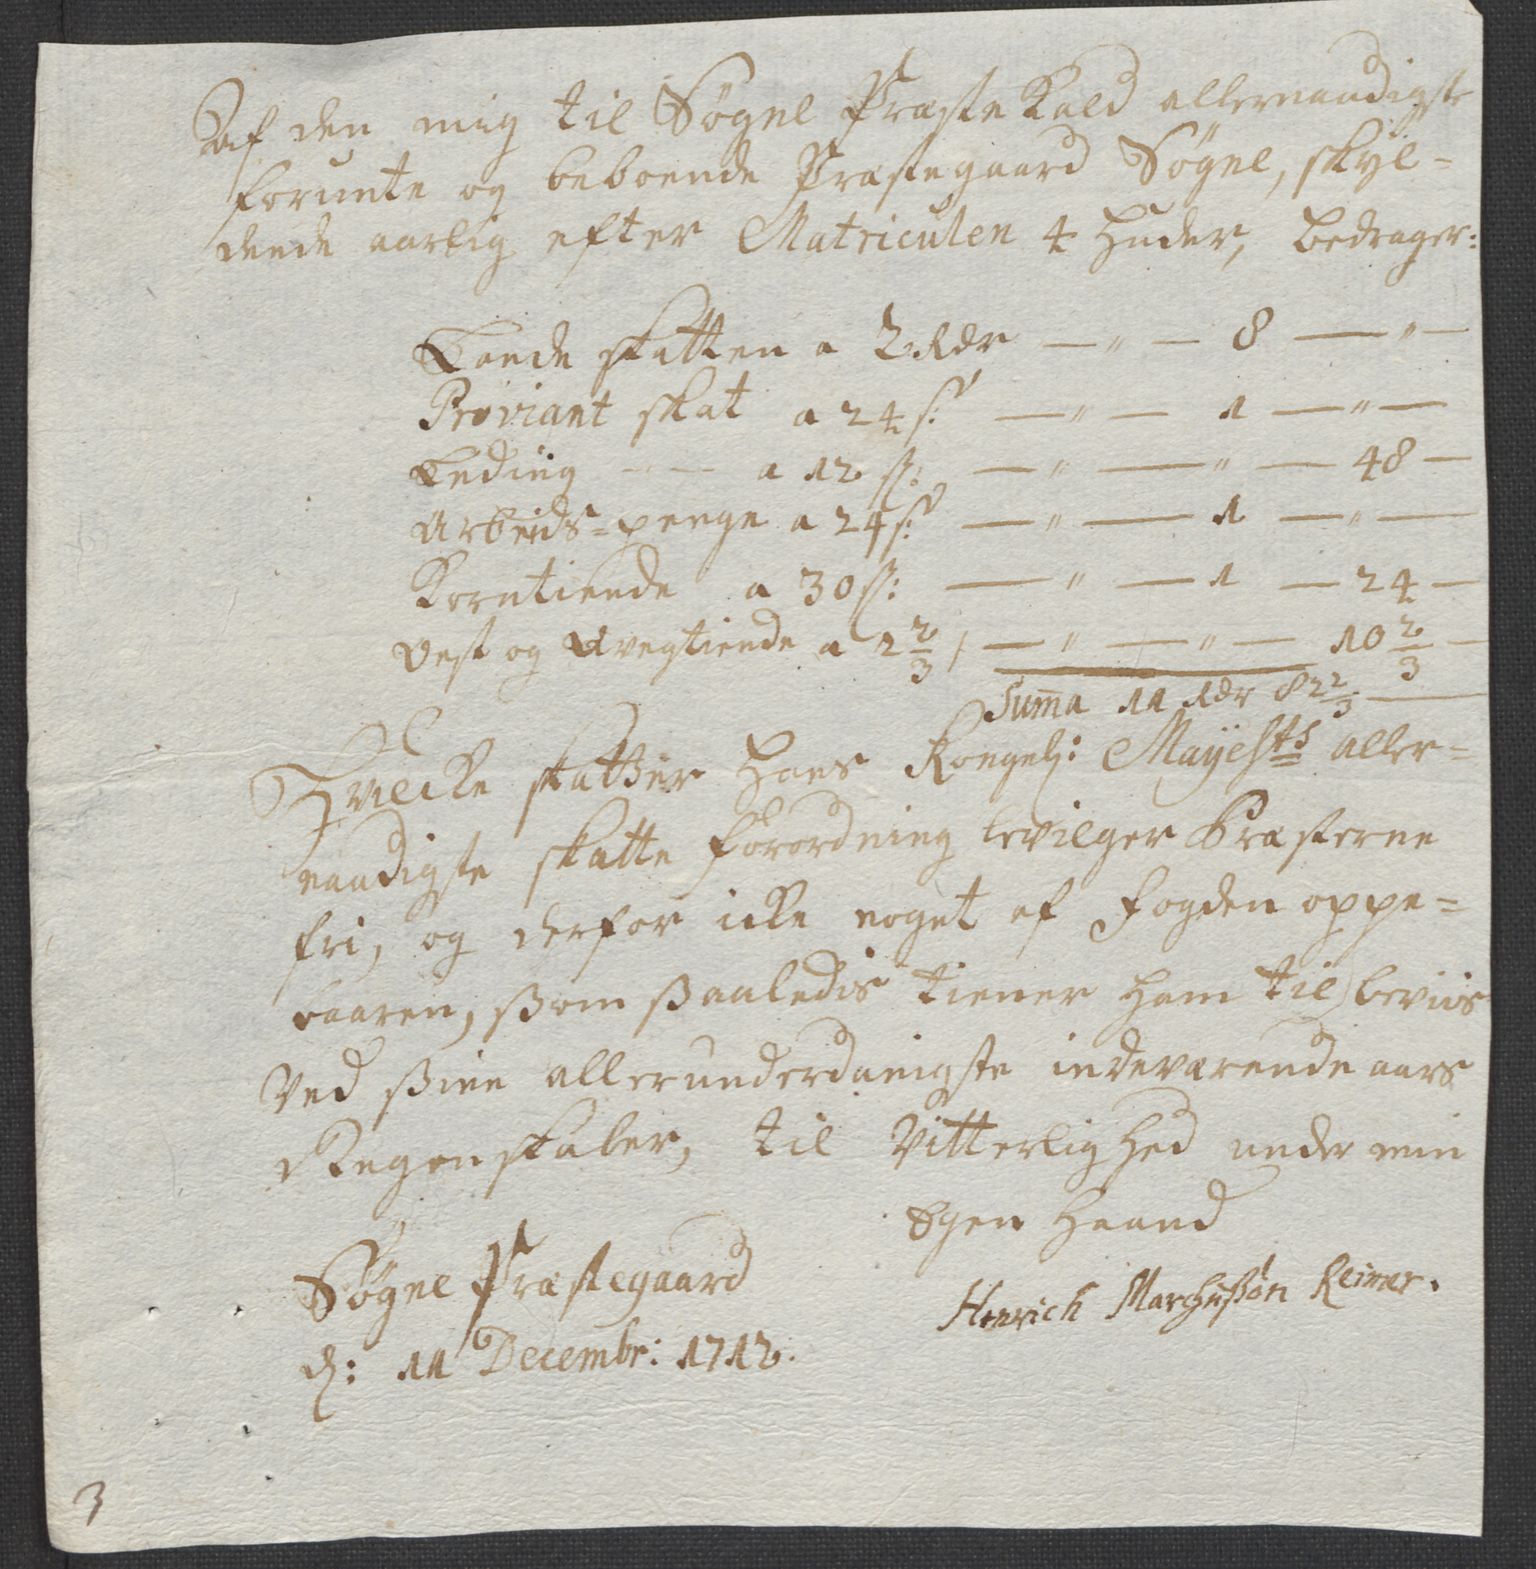 Af den mig til Søgne Præste Kald allernaadigst
forunte og beboende Præstegaard Søgne, skyl-
dende aarlig efter Matriculen 4 Huder, bedrager:
Lande skatten a 2 Rdr — " — 8 — " —
Proviant skat a 24 s: — " — 1 — " —
Leding — — a 12 s: — " — " — 48 —
Arbeids-penge a 24 s: — " — 1 — " —
Korntiende a 30 s: — " — 1 — 24 —
Ost og Qvegtiende a 2 2/3 / — " — " — 10 2/3 —
Summa 11 Rdr 82 2/3 —
Hvilcke skatter Hans Kongel: Mayests aller-
naadigste skatte forordning bevilger Præsterne
fri, og derfor icke noget af Fogden oppe-
baaren, som saaledis tiener ham til beviis
Ved sine allerunderdanigste indeværende aars
Regenskaber, til Vitterlighed under min
Egen Haand
Søgne Præstegaard
d: 11 Decembr: 1712.
Henrich Marchussøn Reimer.
3